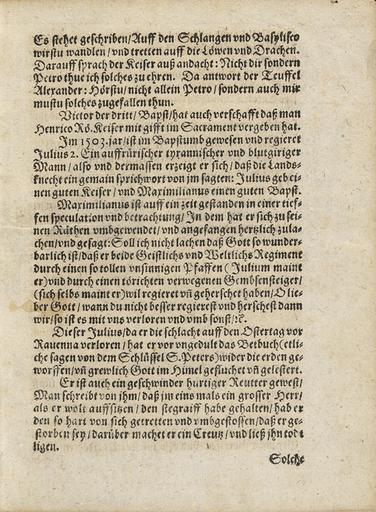 Es stehet geschriben/Auff den Schlangen vnd Basylisco
wirstu wandlen/vnd tretten auff die Löwen vnd Drachen.
Darauff sprach der Keiser auß andacht: Nicht dir sondern
Petro thue ich solches zu ehren. Da antwort der Teuffel
Alexander: Hörstu/nicht allein Petro/sondern auch mir
mustu solches zugefallen thun.
Victor der dritt/Bapst/hat auch verschafft daß man
Henrico Rö. Keiser mit gifft im Sacrament vergeben hat.
Im 1503. jar/ist im Bapstumb gewesen vnd regieret
Julius 2. Ein auffrürischer tyrannischer vnd blutgiriger
Mann/also vnd dermassen erzeigt er sich/daß die Lands-
knecht ein gemain sprichwort von jm sagten: Julius geb ei-
nen guten Keiser/vnd Maximilianus einen guten Bapst.
Maximilianus ist auff ein zeit gestanden in einer tief-
fen speculation vnd betrachtung/In dem hat er sich zu sei-
nen Räthen vmbgewendet/vnd angefangen hertzlich zula-
chen/vnd gesagt: Soll ich nicht lachen daß Gott so wunder-
barlich ist/daß er beide Geistlichs vnd Weltlichs Regiment
durch einen so tollen vnsinnigen Pfaffen (Julium maint
er) vnd durch einen törichten verwegenen Gembsensteiger/
(sich selbs maint er) wil regieret vñ geherschet haben/O lie-
ber Gott/wann du nicht besser regierest vnd herschest dann
wir/so ist es mit vns verloren vnd vmb sonst/ꝛc.
Dieser Julius/da er die schlacht auff den Ostertag vor
Rauenna verloren/hat er vor vngedult das Betbuch (etli-
che sagen von dem Schlüssel S. Peters) wider die erden ge-
worffen/vñ grewlich Gott im Himel geflucht vñ gelestert.
Er ist auch ein geschwinder hurtiger Reutter gewest/
Man schreibt von ihm/daß jm eins mals ein grosser Herr/
als er wolt auffsitzen/den stegraiff habe gehalten/hab er
den so hart von sich getretten vnd vmbgestossen/daß er ge-
storben sey/darüber machet er ein Creutz/vnd ließ jhn tod
ligen.
Solche